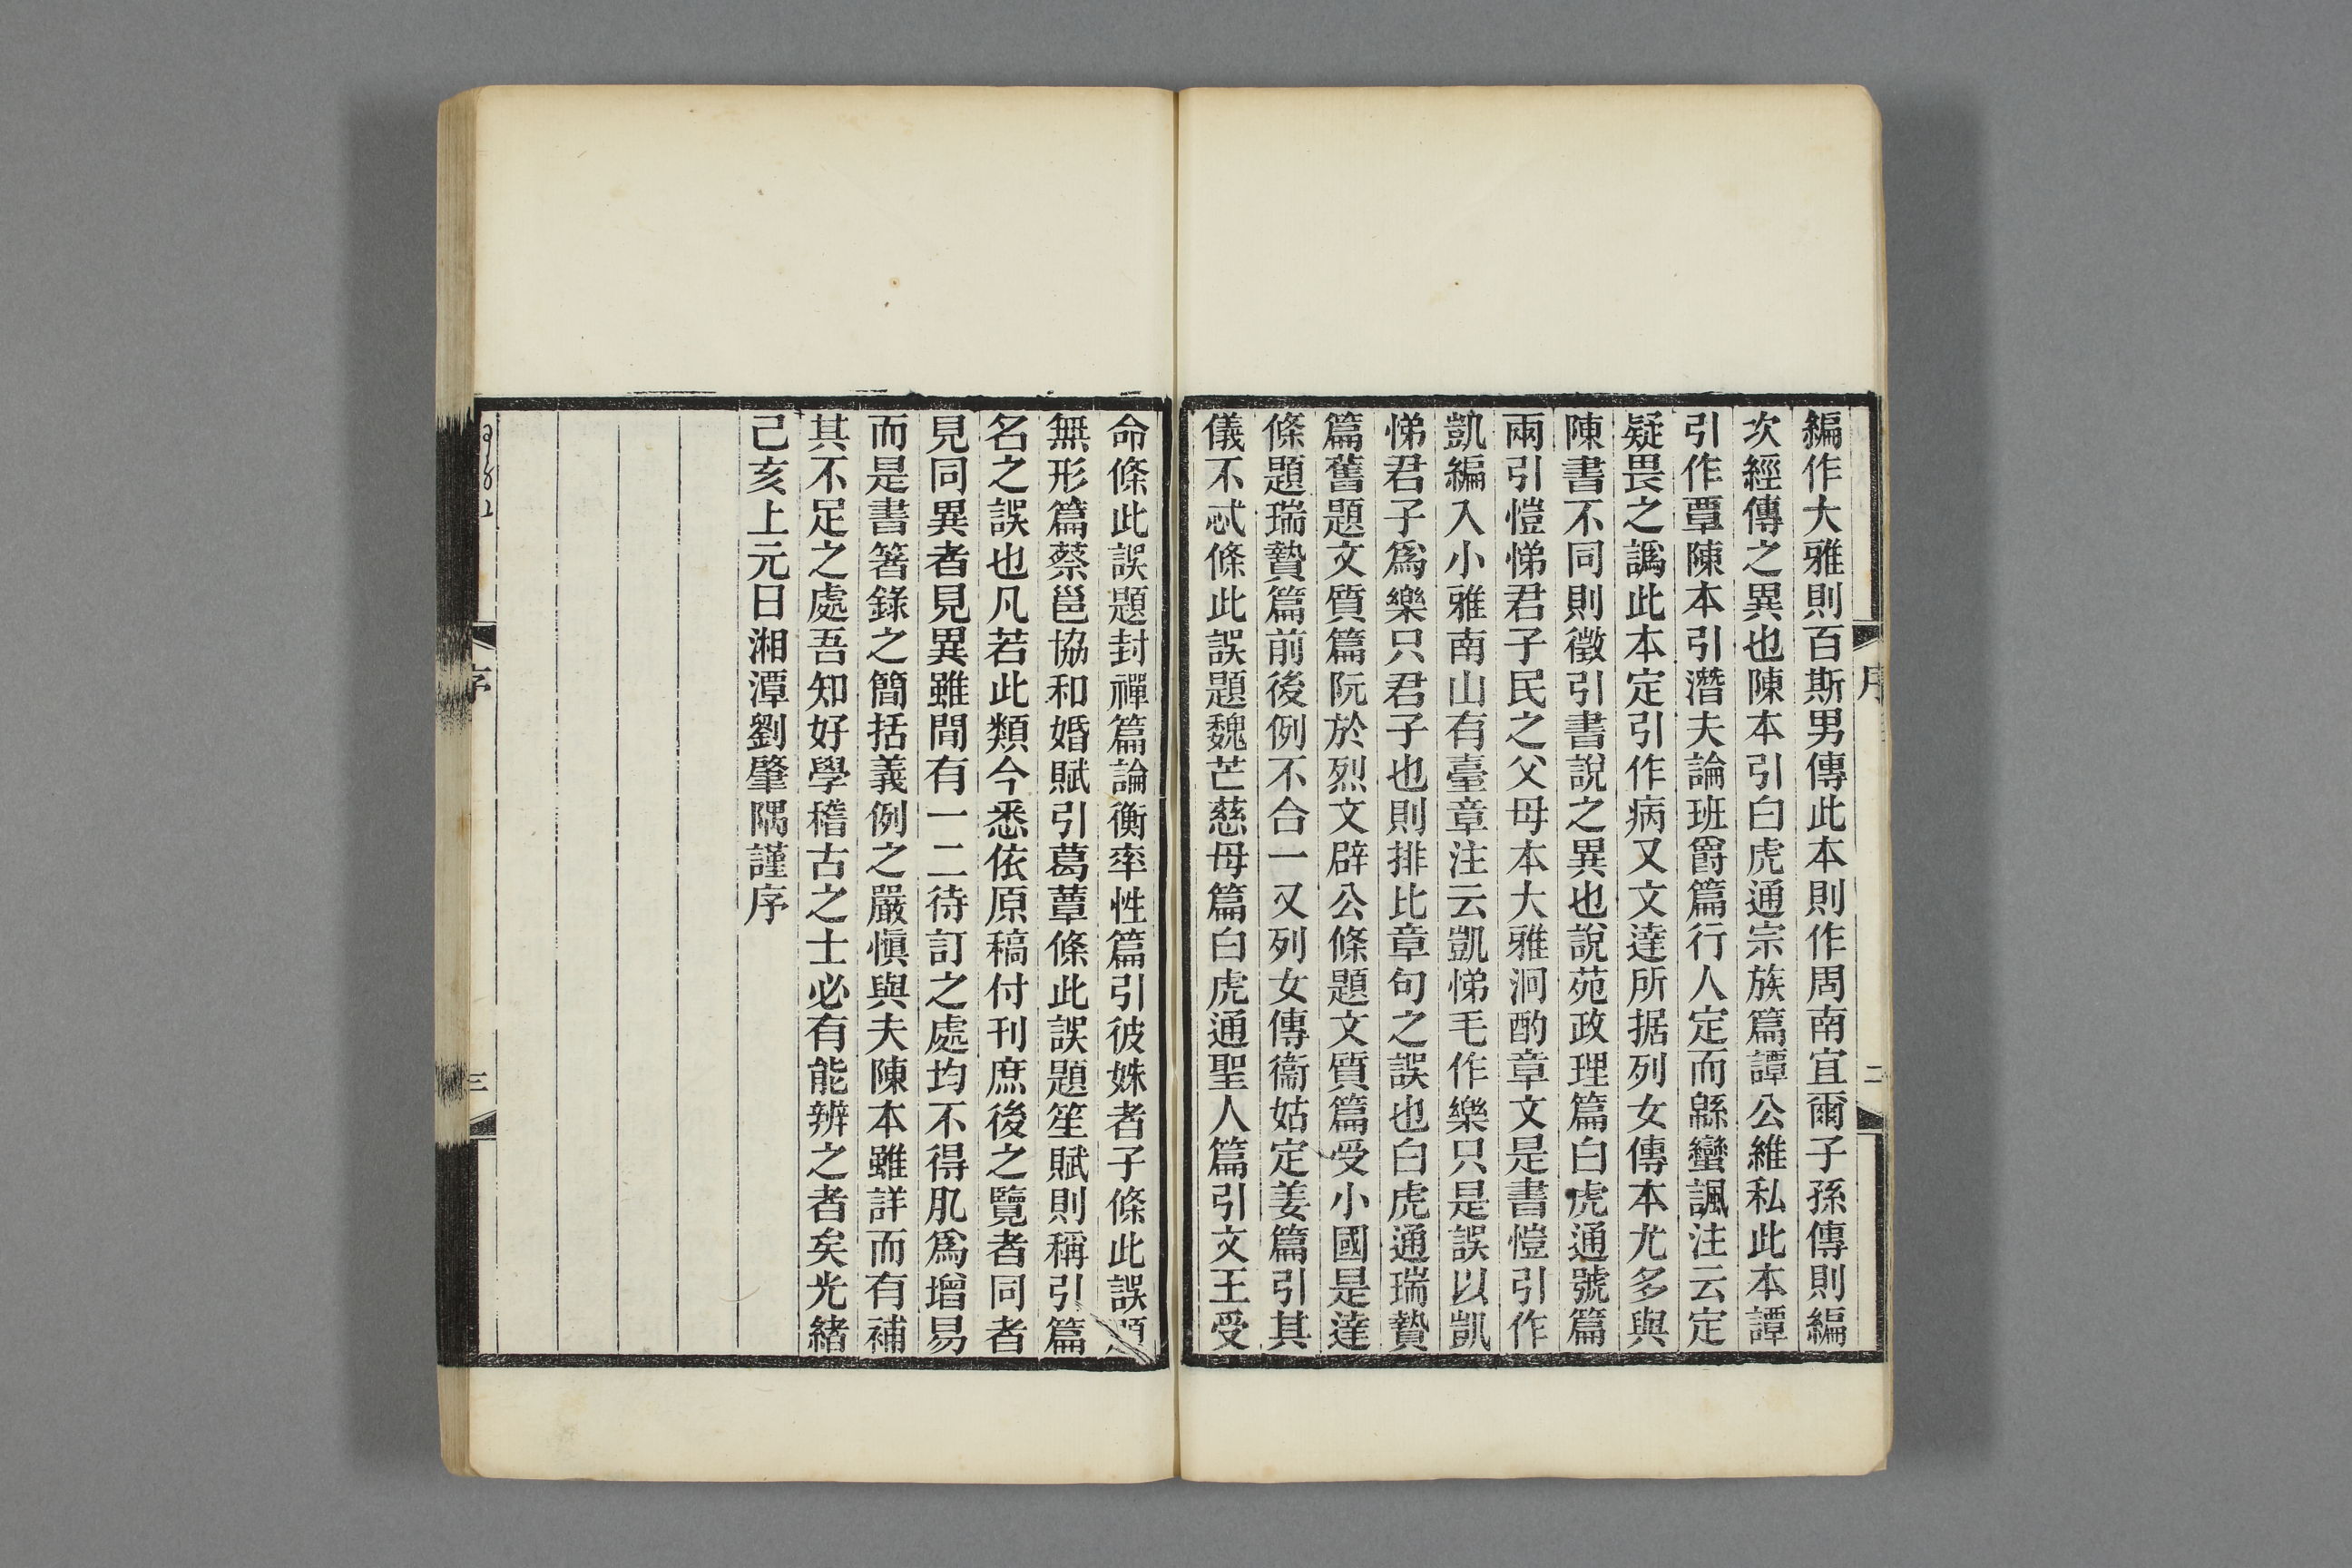 序
二
編作大雅則百斯男傳此本則作周南宜爾子孫傳則編
次經傳之異也陳本引白虎通宗族篇譚公維私此本譚
引作覃陳本引潛夫論班爵篇行人定而緜蠻諷注云定
疑畏之譌此本定引作病又文達所据列女傳本尤多與
陳書不同則徵引書說之異也說苑政理篇白虎通號篇
兩引愷悌君子民之父母本大雅泂酌章文是書愷引作
凱編入小雅南山有臺章注云凱悌毛作樂只是誤以凱
悌君子爲樂只君子也則排比章句之誤也白虎通瑞贄
篇舊題文質篇阮於烈文辟公條題文質篇受小國是達
條題瑞贄篇前後例不合一又列女傳衞姑定姜篇引其
儀不忒條此誤題魏芒慈母篇白虎通聖人篇引文王受
命條此誤題封禪篇論衡率性篇引彼姝者子條此誤題
無形篇蔡邕協和婚賦引葛蕈條此誤題笙賦則稱引篇
名之誤也凡若此類今悉依原稿付刊庶後之覽者同者
見同異者見異雖間有一二待訂之處均不得肊爲增易
而是書箸錄之簡括義例之嚴愼與夫陳本雖詳而有補
其不足之處吾知好學稽古之士必有能辨之者矣光緒
己亥上元日湘潭劉肇隅謹序
序
三